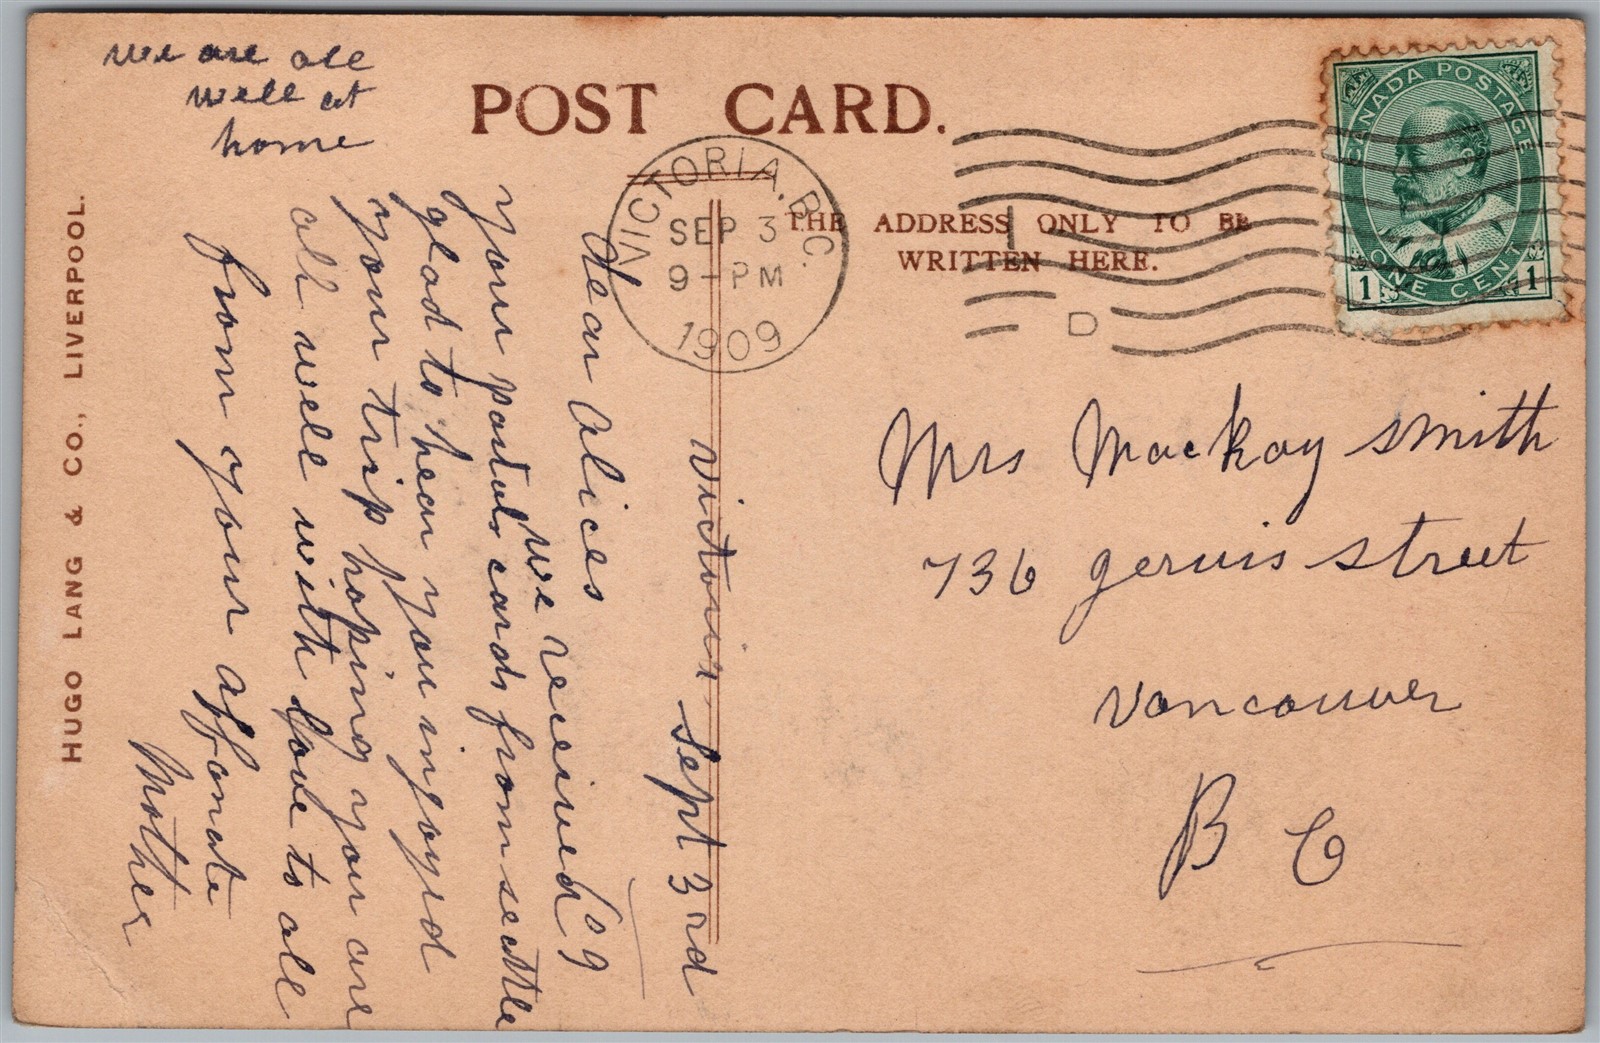 POST CARD.
THE ADDRESS ONLY TO BE
WRITTEN HERE.
VICTORIA, B.C.
SEP 3
9-PM
1909
D
CANADA POSTAGE
ONE CENT
1 1
Mrs Mackay Smith
736 gervis street
Vancouver
B C
Victoria Sept 3rd
09
Dear Alices
we received
your postals cards from seattle
glad to hear you injoyed
your trip hoping your are
all well with love to all
from your affonate
Mother
we are all
well at
home
HUGO LANG & CO., LIVERPOOL.